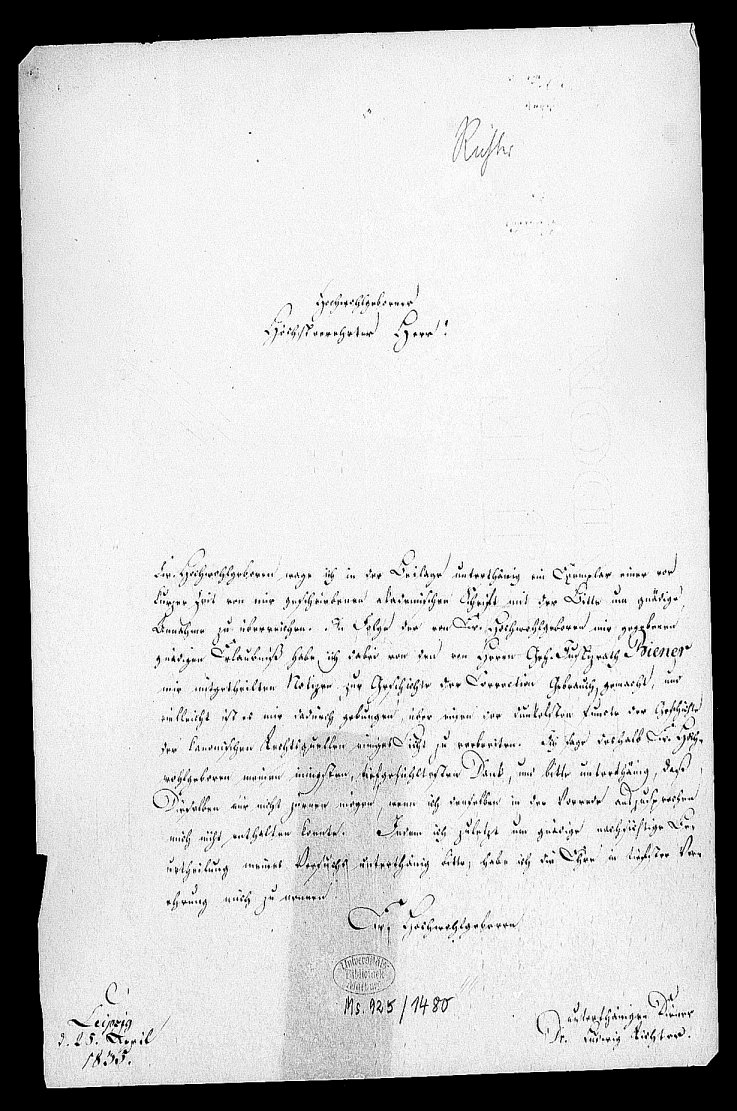 Richter
Hochwohlgeborner
Höchstverehrter Herr!
Ew. Hochwohlgeboren wage ich in der Beilage unterthänig ein Exemplar einer vor
kurzer Zeit von mir geschriebenen akademischen Schrift mit der Bitte um gnädige
Annahme zu überreichen. In Folge der von Ew. Hochwohlgeboren mir gegebenen
gnädigen Erlaubniß habe ich dabei von den von Herrn Geh. Justizrath Biener
mir mitgetheilten Notizen zur Geschichte der Correction Gebrauch gemacht, und
vielleicht ist es mir dadurch gelungen, über einen der dunkelsten Punkte der Geschichte
der kanonischen Rechtsquellen einiges Licht zu verbreiten. Ich sage deshalb Ew. Hoch-
wohlgeboren meinen innigsten, tiefgefühltesten Dank, und bitte unterthänig, daß
Dieselben mir nicht zürnen mögen, wenn ich denselben in der Vorrede auszusprechen
mich nicht enthalten konnte. Indem ich zuletzt um gnädige nachsichtige Be-
urtheilung meines Versuchs unterthänig bitte, habe ich die Ehre in tiefster Ver-
ehrung mich zu nennen
Ew. Hochwohlgeboren
Universitäts-
Bibliothek
Marburg
Ms. 925/1480
Leipzig
d. 25. April
1835.
unterthäniger Diener
Dr. Ludwig Richter.